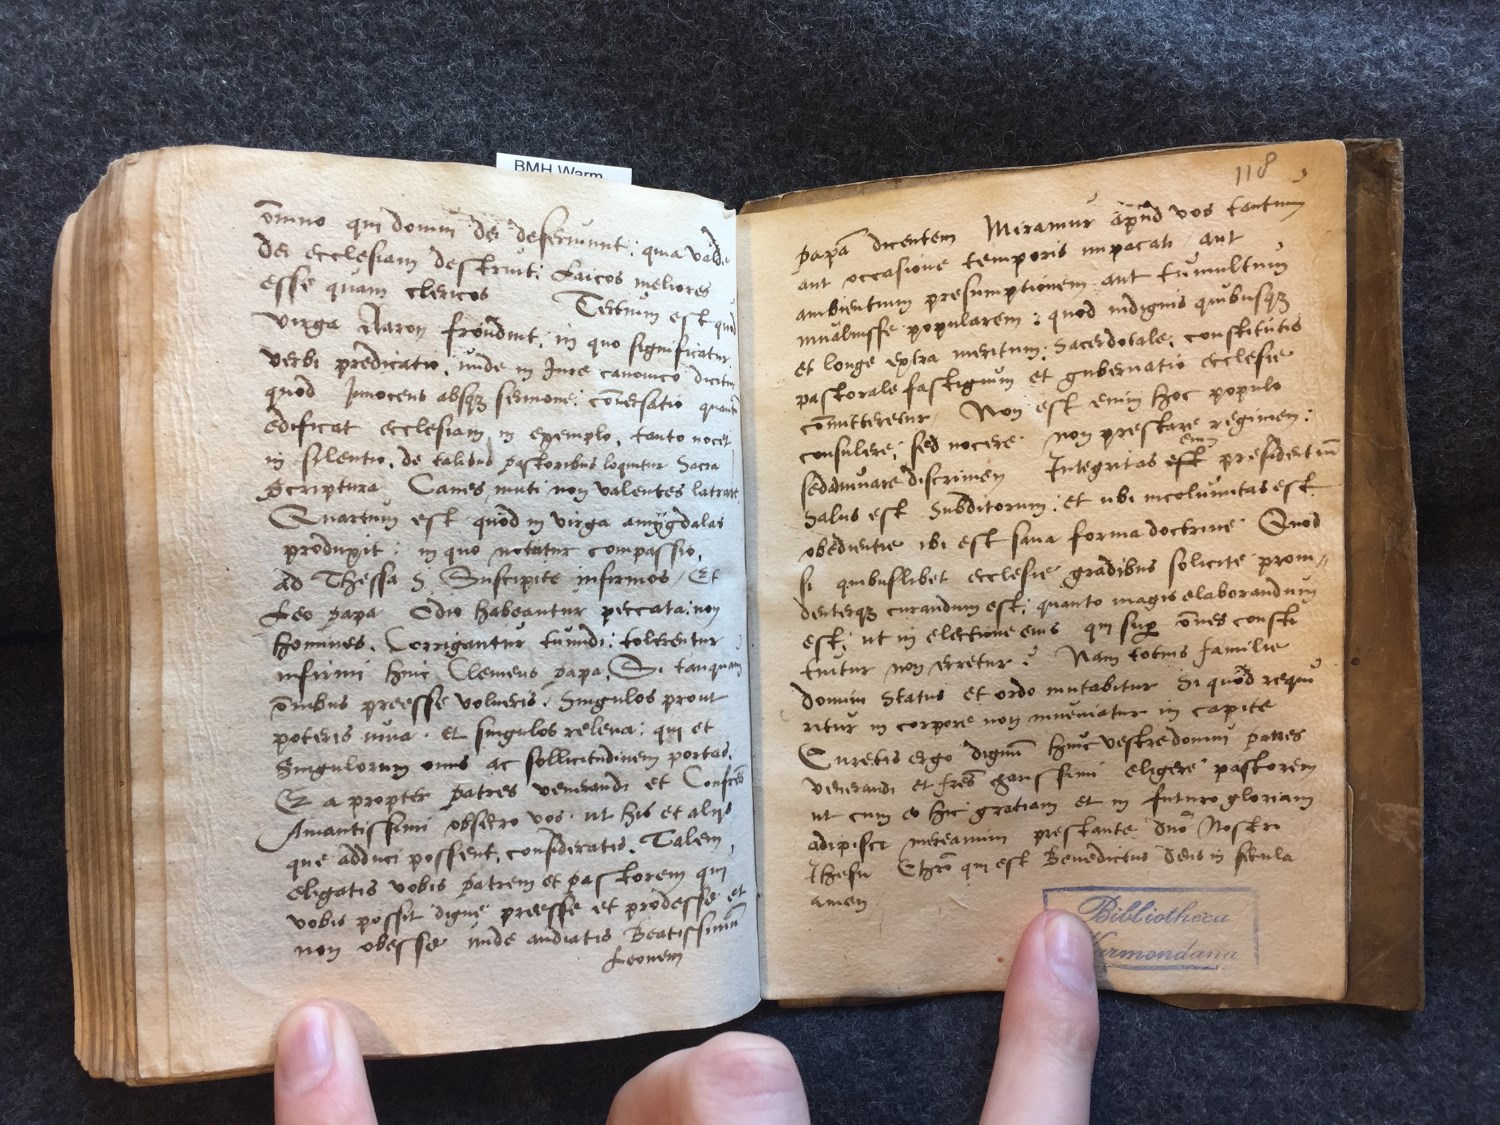 BMH Warm
o͞mno qui domui dei deseruiunt: quia valde
dei ecclesiam destruit: Laicos meliores
esse quam clericos Tertium est quod
virga Aaron fronduit, in quo significatur
verbi predicatio, unde in Jure canonico dicitur
quod Innocens absq̃ sermone: co͞nuersatio quantu͞
edificat ecclesiam in exemplo, tanto nocet
in silentio, de talibus pastoribus loquitur Sacra
Scriptura Canes muti non valentes latrare
Quartum est quod in virga amÿgdalas
produxit: in quo notatur compassio,
ad Thessa 5 Suscipite infirmos / Et
Leo papa Odio habeantur peccata: non
homines. Corrigantur tumidi: tolerentur
infirmi hinc Clemens papa, Si tanquam
o͞mibus preesse volueris. Singulos prout
poteris iuua. et singulos releua: qui et
Singulorum onus ac sollicitudinem portas.
Ea propter patres venerandi et Confr͞es
Amantissimi obsecro vos. ut his et alijs
que adduci possent, consideratis. Talem
eligatis vobis patrem et pastorem qui
vobis possit digne preesse et prodesse et
non obesse unde audiatis Beatissimu͞
Leonem
118
papa͞ dicentem Miramur apud vos tantum
aut occasione temporis impacati aut
ambientium presumptionem aut tumultum
inualuisse popularem: quod indignis quibusq̃
et longe extra meritum, Sacerdotale, constitutis
pastorale fastigium et gubernatio ecclesie
co͞mitteretur Non est enim hoc populo
consulere, sed nocere non prestare regimen:
sed augere discrimen Integritas est enim presidentiu͞
Salus est Subditorum: et ubi incolumitas est
obedientie ibi est sana forma doctrine Quod
si quibuslibet ecclesie gradibus solicite proui//
denterq̃ curandum est; quanto magis elaborandum
est; ut in electione eius qui sup o͞nes consti
tuitur non erretur? Nam totius familie
domini Status et ordo mutabitur Si quod requi
ritur in corpore non inueniatur in capite
Curetis ergo dignu͞ huic vestre domui patres
venerandi et fr͞es charissimi eligere pastorem
ut cum eo hic gratiam et in futuro gloriam
adipisci mereamini prestante dn͞o Nostro
Jhesu Chr͞o qui est Benedictus deus in secula
amen
Bibliotheca
Warmondana